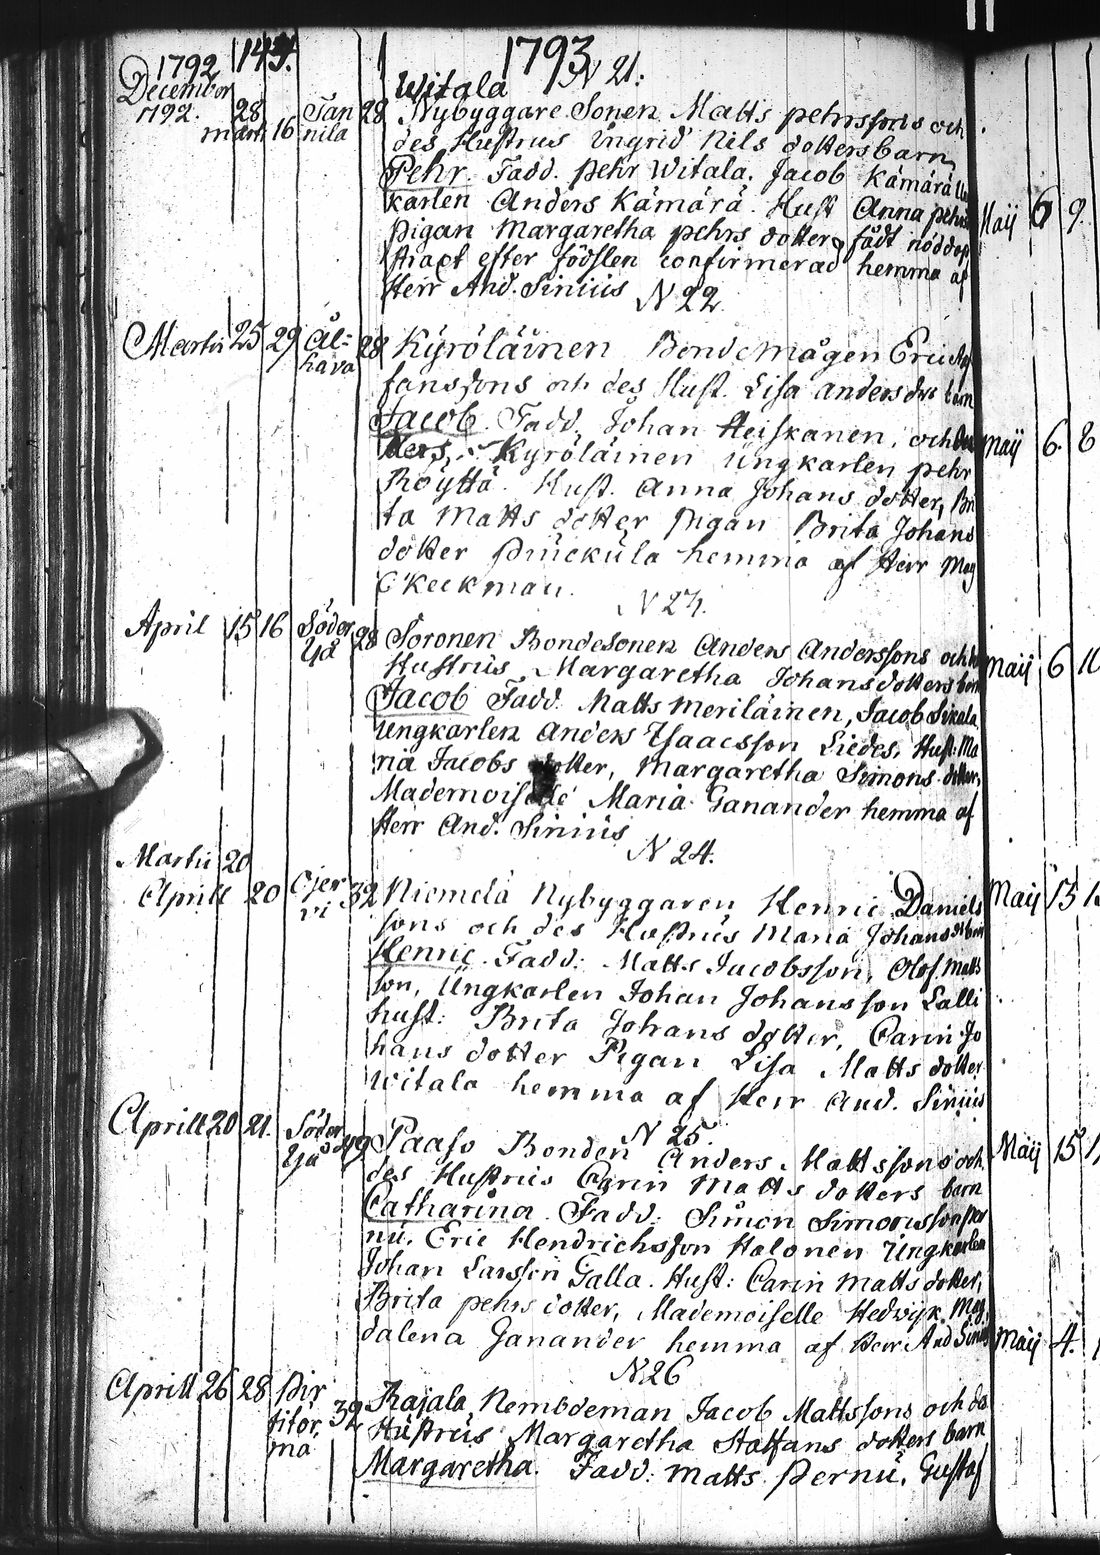 1792 143. 1793
December N 21:
1792. 28 Tan 28 Witala
martii 16 nila Nybyggare Sonen Matts pehrssons och
des Hustrus Ingrid Nils dotters barn
Pehr. Fadd. pehr Witala. Jacob Kämärä
karlen Anders Kämärä. Hust Anna pehrs
pigan Margaretha pehrs dotter, fådt nöddop
straxt efter födslen confirmerad hemma af
Herr And. Sinius
N 22.
Martii 25 29 Ål= 28 Kyröläinen Bondemågen Eric
hava fanssons och des Hust. Lisa anders dtrs barn
Jacob. Fadd. Johan Heiskanen, och
Kyröläinen Ungkarlen pehr
Röyttä. Hust. Anna Johans dotter, Bri
ta Matts dotter pigan Brita Johans
dotter Puuckula hemma af Herr Mag
C Keckman.
N 23.
April 15 16 Söder 28 Soronen Bondesonen Anders Anderssons och
Yå Hustrus Margaretha Johansdotters barn
Jacob Fadd. Matts Meriläinen, Jacob Sirala
Ungkarlen Anders Isaacsson Liedes, Hust: Ma
ria Jacobs dotter, Margaretha Simons dotter,
Mademoiselle Maria Ganander hemma af
Herr And. Sinius
N 24.
Martii 20
Aprill 20 Ojer 32 Niemelä Nybyggaren Henric Daniels
vi sons och des Hustrus Maria Johans dr barn
Henric. Fadd: Matts Jacobsson, Olof Matts
son, Ungkarlen Johan Johansson Lalli
hust: Brita Johans dotter, Carin Jo
hans dotter Pigan Lisa Matts dotter
Witala hemma af Herr And. Sinius
N 25.
Aprill 20 21. Söder 29 Paaso Bonden Anders Mattssons och
Yå des Hustrus Carin Matts dotters barn
Catharina. Fadd: Simon Simonsson per
nu, Eric Hendrichsson Halonen Ungkarlen
Johan Larsson Galla. Hust: Carin Matts dotter,
Brita pehrs dotter, Mademoiselle Hedvigk Mag
dalena Ganander hemma af Herr And Sinius
N 26
Aprill 26 28 Pir 32 Rajala Nembdeman Jacob Mattssons och des
titör Hustrus Margaretha Staffans dotters barn
mä Margaretha. Fadd: Matts Pernu, Gustaf
Maij 6 9.
Maij 6. 8
Maij 6 10
Maij 15
Maij 15
Maij 4.